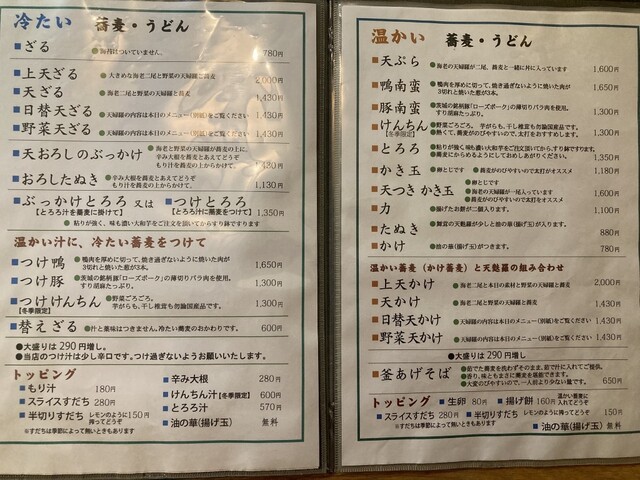 冷たい 蕎麦・うどん
■ざる ●海苔はついていません。 780円
■上天ざる ●大きめな海老二尾と野菜の天婦羅と蕎麦 2,000円
■天ざる ●海老二尾と野菜の天婦羅と蕎麦 1,430円
■日替天ざる ●天婦羅の内容は本日のメニュー(別紙)をご覧ください 1,430円
■野菜天ざる ●天婦羅の内容は本日のメニュー(別紙)をご覧ください 1,430円
■天おろしのぶっかけ ●海老と野菜の天婦羅が蕎麦の上に、
辛み大根を蕎麦とあえてどうぞ
もり汁を蕎麦の上からかけて。 1,430円
■おろしたぬき ●辛み大根を蕎麦とあえてどうぞ
もり汁を蕎麦の上からかけて。 1,130円
■ぶっかけとろろ 又は ■つけとろろ
【とろろ汁を蕎麦に掛けて】 【とろろ汁に蕎麦をつけて】 1,350円
●粘りが強く、味も濃い大和芋をご注文頂いてからすり鉢ですります
温かい汁に、冷たい蕎麦をつけて
■つけ鴨 ●鴨肉を厚めに切って、焼き過ぎないように焼いた肉が
3切れと焼いた葱が3本。 1,650円
■つけ豚 ●茨城の銘柄豚「ローズポーク」の薄切りバラ肉を使用。
すり胡麻たっぷり。 1,300円
■つけけんちん ●野菜ごろごろ。
【冬季限定】 芋がらも、干し椎茸も勿論国産品です。 1,300円
■替えざる ●汁と薬味はつきません。冷たい蕎麦のおかわりです。 600円
●大盛りは290円増し。
●当店のつけ汁は少し辛口です。つけ過ぎないようお願いいたします。
トッピング
■もり汁 180円
■スライスすだち 280円
■半切りすだち レモンのように搾ってどうぞ 150円
※すだちは季節によって無いときもあります
■辛み大根 280円
■けんちん汁【冬季限定】 600円
■とろろ汁 570円
■油の華(揚げ玉) 無料
温かい 蕎麦・うどん
■天ぷら ●海老の天婦羅が二尾、蕎麦と一緒に丼に入っています 1,600円
■鴨南蛮 ●鴨肉を厚めに切って、焼き過ぎないように焼いた肉が
3切れと焼いた葱が3本。 1,650円
■豚南蛮 ●茨城の銘柄豚「ローズポーク」の薄切りバラ肉を使用。
すり胡麻たっぷり。 1,300円
■けんちん ●野菜ごろごろ。 芋がらも、干し椎茸も勿論国産品です。
【冬季限定】 ●熱くて、蕎麦がのびやすいので、太打をおすすめします。 1,300円
■とろろ ●粘りが強く味も濃い大和芋をご注文頂いてから、すり鉢ですります。
●蕎麦にからめるようにしておめしあがりください。 1,350円
■かき玉 ●卵とじです ●蕎麦がのびやすいので太打がオススメ 1,180円
■天つき かき玉 ●卵とじです
●海老の天婦羅が一尾入っています
●蕎麦がのびやすいので太打がオススメ 1,690円
■力 ●揚げたお餅が二個入ります。 1,100円
■たぬき ●舞茸の天麩羅が少しと油の華(揚げ玉)が入ります。 880円
■かけ ●油の華(揚げ玉)がつきます。 780円
温かい蕎麦(かけ蕎麦)と天麩羅の組み合わせ
■上天かけ ●海老二尾と本日の素材と野菜の天婦羅と蕎麦 2,000円
■天かけ ●海老二尾と野菜の天婦羅と蕎麦 1,430円
■日替天かけ ●天婦羅の内容は本日のメニュー(別紙)をご覧ください 1,430円
■野菜天かけ ●天婦羅の内容は本日のメニュー(別紙)をご覧ください 1,430円
●大盛りは290円増し
■釜あげそば ●茹でた蕎麦を洗わずそのまま、茹で汁に入れてご提供。
●香り、味ともまさに蕎麦を堪能できます。
●大変のびやすいので、一人前より少ない量です。 650円
トッピング ■生卵 80円 ■揚げ餅 160円 温かい蕎麦に入れてどうぞ
■スライスすだち 280円 ■半切りすだち レモンのように搾ってどうぞ 150円
※すだちは季節によって無いときもあります ■油の華(揚げ玉) 無料